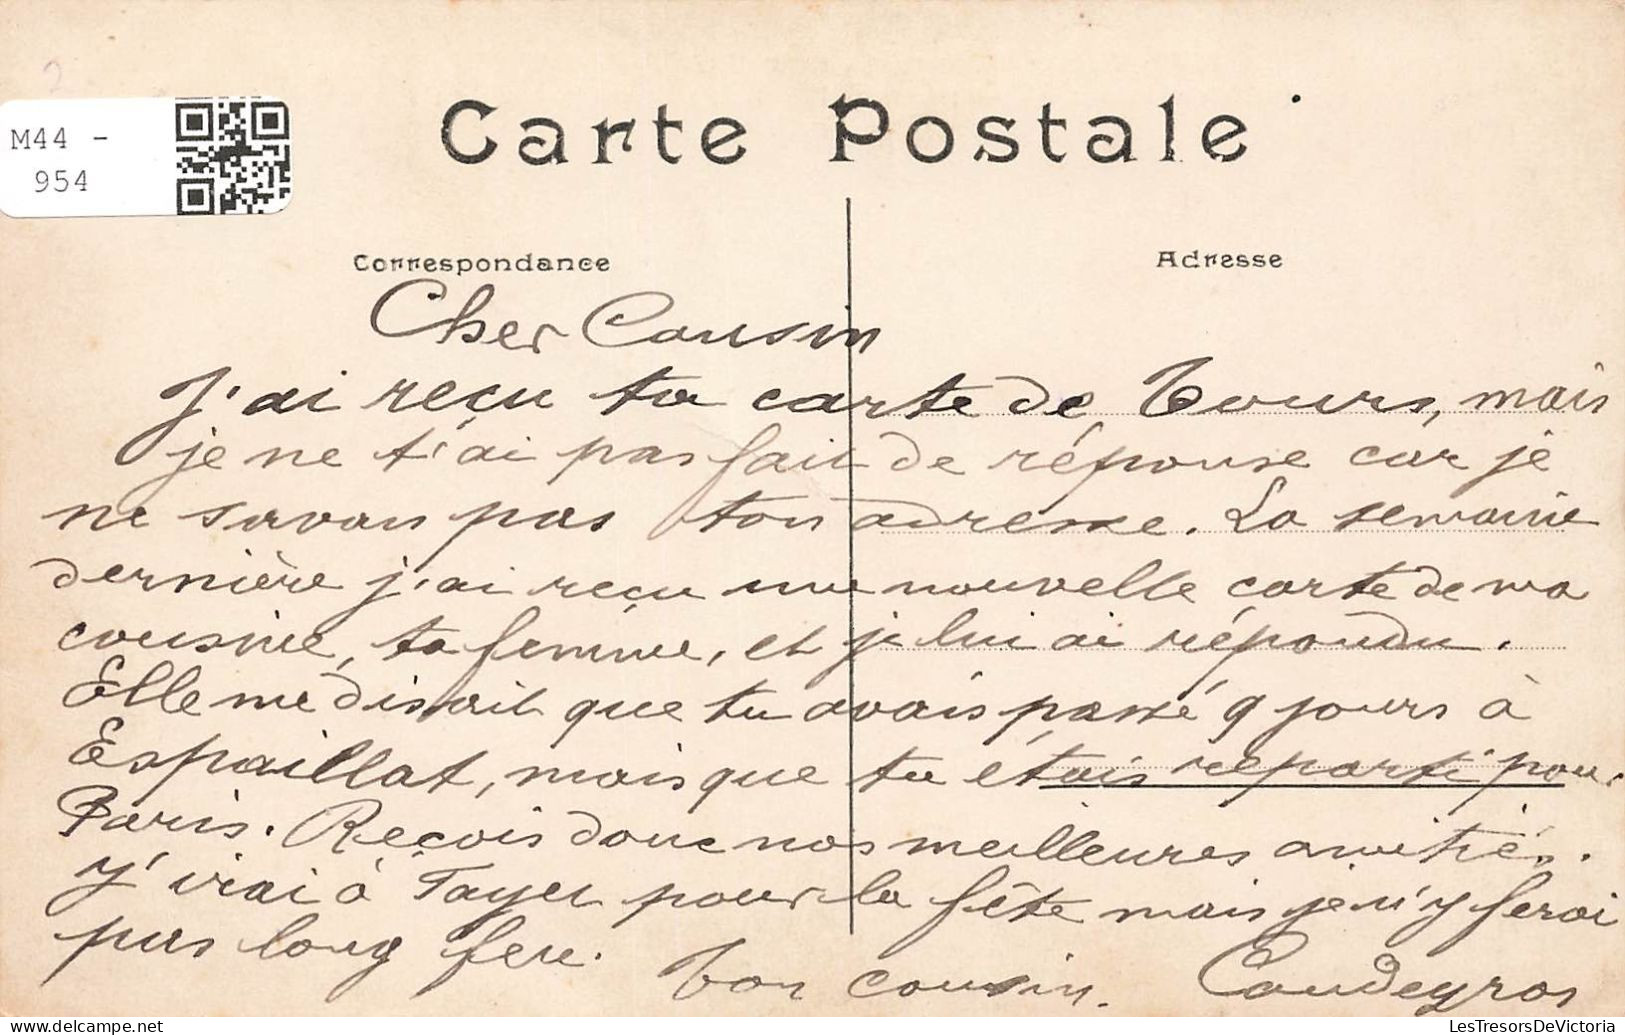 M44 -
954
Carte Postale
Correspondance
Adresse
Cher Cousin
J'ai reçu ta carte de Tours, mais
je ne t'ai pas fait de réponse car je
ne savais pas ton adresse. La semaine
dernière j'ai reçu une nouvelle carte de ma
cousine, ta femme, et je lui ai répondu.
Elle me disait que tu avais passé 9 jours à
Espaillat, mais que tu étais reparti pour
Paris. Reçois donc nos meilleures amitiés.
J'irai à Tayer pour la fête mais je n'y ferai
pas long feu.
Ton cousin. Coudeyros
LesTresorsDeVictoria